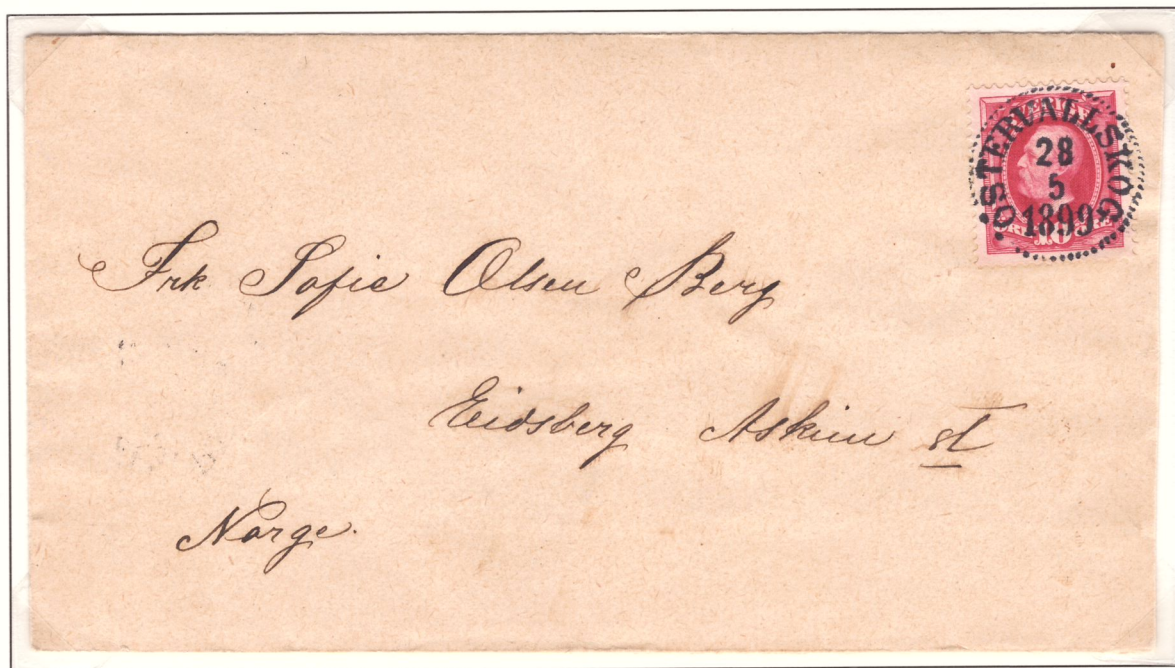 ÖSTERVALLSKOG
28
5
1899
10
Frk Sofie Olsen Berg
Eidsberg Askim st
Norge.